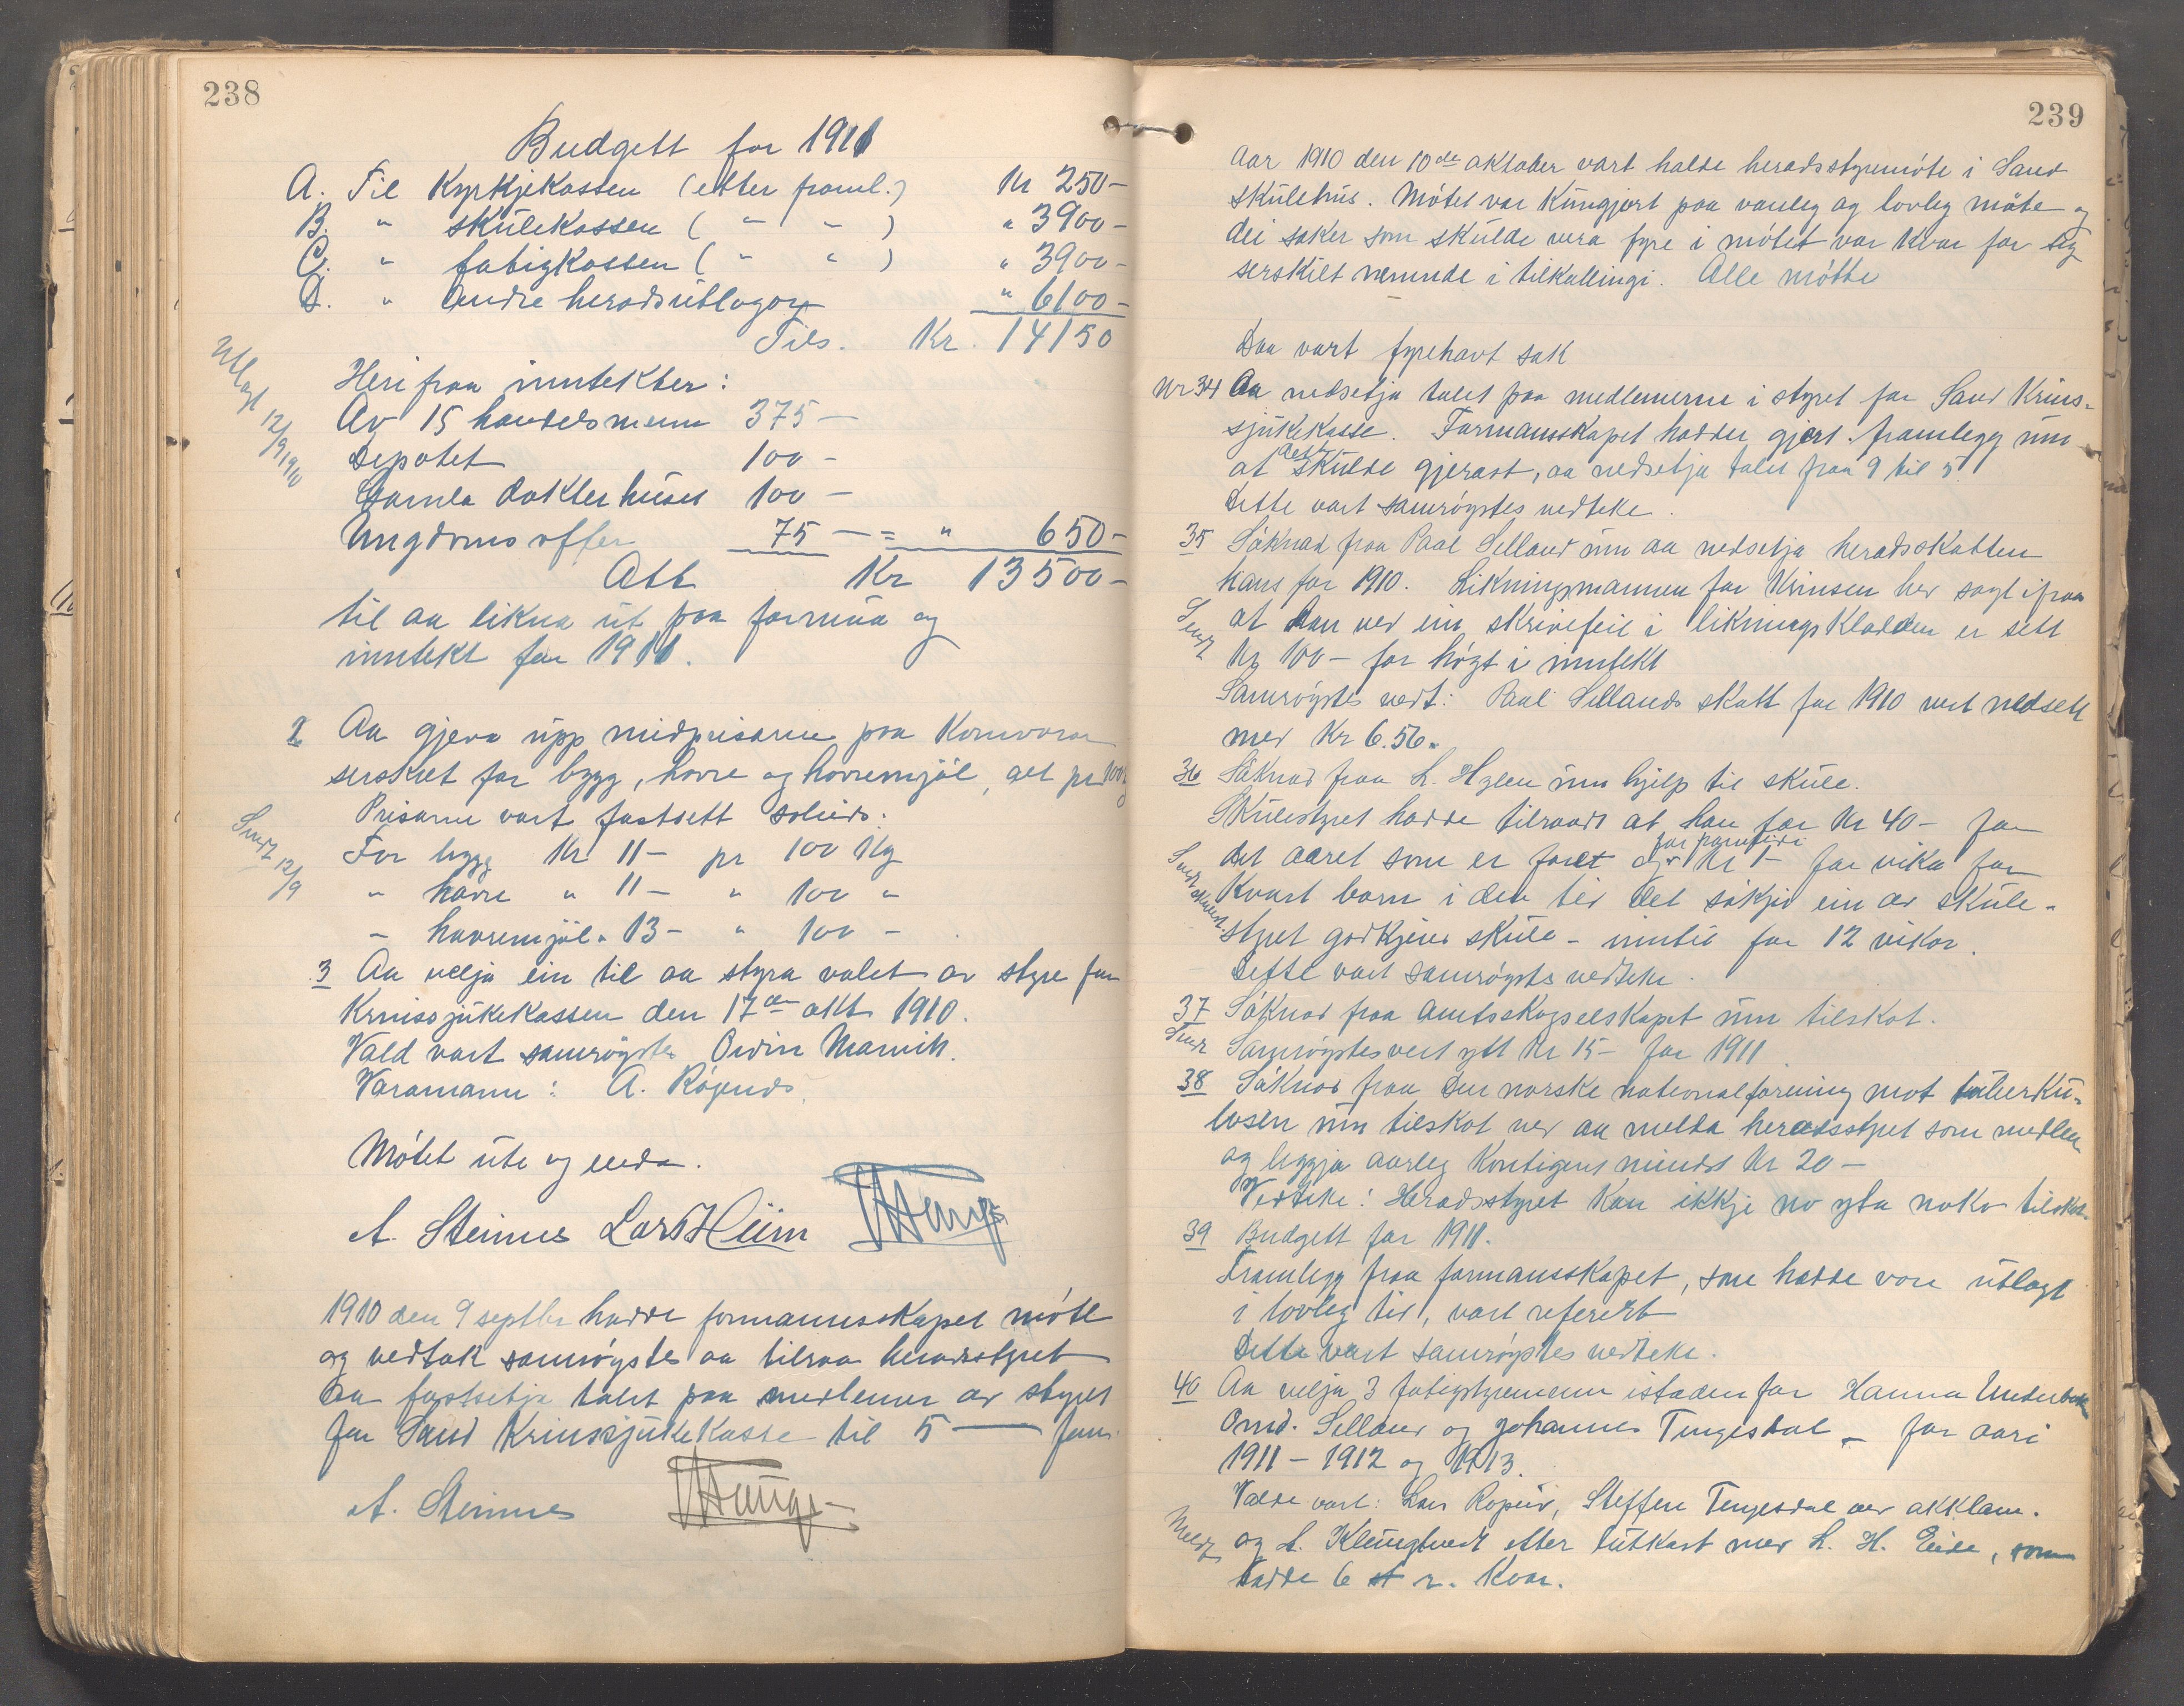 238
Budgett for 1911
A. Til Kyrkjekassen (etter framl.) Kr 250-
B. " skulekassen ( " - ) " 3900-
C. " fatigkassen ( " " ) " 3900-
D. " Andre heradsutlogor " 6100-
Tils. Kr. 14150
Utlagt 12/9 1910
Heri fraa inntekter:
Av 15 handelsmenn 375-
Depotet 100-
Gamla dokterhuset 100-
Ungdomsoffer 75- = " 650-
Att Kr 13500-
til aa likna ut paa formua og
inntekt for 1911.
2 Aa gjeva upp midprisarne paa Kornvarer
serskilt for bygg, havre og havremjöl, alt pr 100 kg
Prisarne vart fastsett soleids:
Sendt 12/9
For bygg Kr 11- pr 100 Kg
" havre " 11- " 100 "
- havremjöl " 13- " 100 -
3 Aa velja ein til aa styra valet av styre for
Krinssjukekassen den 17de okt 1910.
Vald vart samrøystes Ordin Marvik.
Varamann: A. Røgends.
Møtet ute og enda.
A. Steinnes Lars Hiim
1910 den 9 septbr hadde formannsskapet møte
og vedtok samrøystes aa tilraa heradsstyret
aa fastsetja talet paa medlemer av styret
for Sand Krinssjukekasse til 5 — fem.
A. Steinnes
239
Aar 1910 den 10de oktober vart halde heradsstyremøte i Sand
skulehus. Møtet var Kungjort paa vanleg og lovleg maate og
dei saker som skulde vera fyre i møtet var kvar for seg
serskilt nemnde i tilkallingi. Alle møtte
Daa vart fyrehavt sak
Nr 34 Aa nedsetja talet paa medlemerne i styret for Sand Krins-
sjukekasse. Formansskapet hadde gjort framlegg um
at det skulde gjerast, aa nedsetja talet fraa 9 til 5.
Dette vart samrøystes vedteke.
35 Søknad fraa Paal Selland um aa nedsetja heradsskatten
hans for 1910. Likningsmannen for Krinsen hev sagt ifraa
Sendt
at han ved ein skrivefeil i likningskladden er sett
Kr 100- for høgt i inntekt
Samrøystes vedt: Paal Sellands skatt for 1910 vert nedsett
med Kr 6.56.
36 Søknad fraa L. Hylen um hjelp til skule.
Skulestyret hadde tilraadt at han faar Kr 40- for
det aaret som er faret og for framtidi Kr 1- for vika for
Kvart barn i den tid det søkjer ein av skule-
styret godkjend skule - inntil for 12 vikor.
Dette vart samrøystes vedteke.
37 Søknad fraa Amtsskogselskapet um tilskot.
Sendt
Samrøystes vert ytt Kr 15- for 1911
38 Søknad fraa Den norske nationalforening mot tuberku-
losen um tilskot ved aa melda heradsstyret som medlem
og leggja aarleg Kontigent mindst Kr 20-
Vedteke: Heradsstyret Kan ikkje no yta noko tilskot.
39 Budgett for 1911.
Framlegg fraa formansskapet, som hadde vore utlagt
i lovleg tid, vart referert
Dette vart samrøystes vedteke.
40 Aa velja 3 fatigstyremenn istadenfor Hanna Underbakke
Omd. Selland og Johannes Tengesdal - for aari
1911 - 1912 og 1913.
Valde vart: Lars Ropeid, Steffen Tengesdal ved akklam.
Meldt
og A. Klungtvedt etter lutkast med L. H. Eide, som
hadde 6 r. kvar.